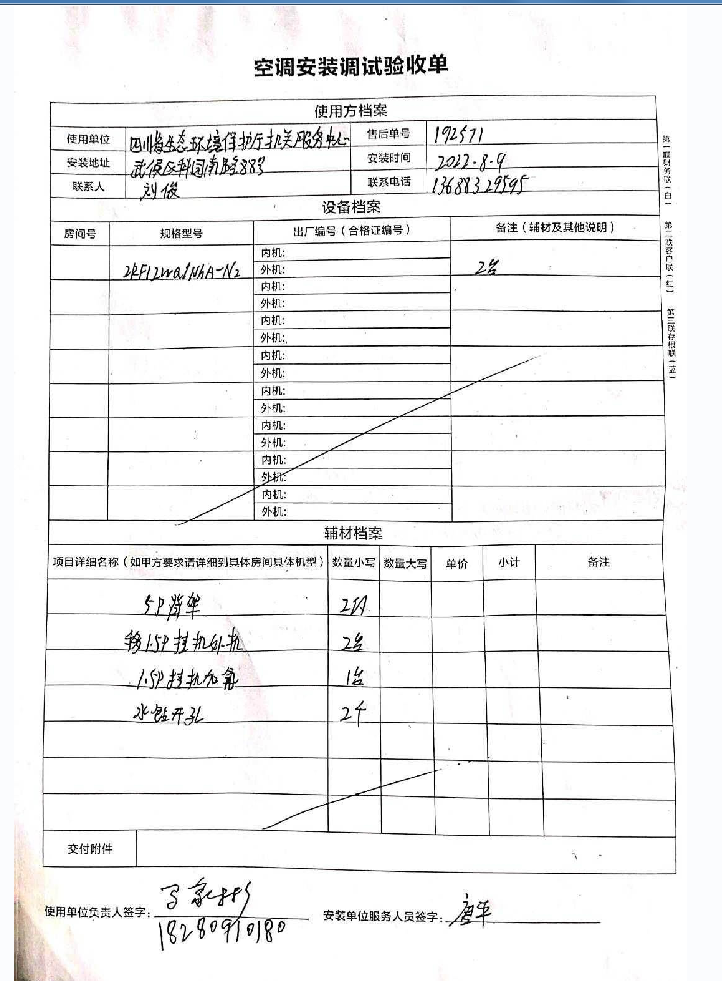 空调安装调试验收单
使用方档案
使用单位 四川省生态环境保护厅机关服务中心 售后单号 192571
安装地址 武侯区科园南路883 安装时间 2022.8.9
联系人 刘俊 联系电话 13688329595
设备档案
房间号 规格型号 出厂编号（合格证编号） 备注（辅材及其他说明）
内机:
外机: 2台
内机:
外机:
内机:
外机:
内机:
外机:
内机:
外机:
内机:
外机:
内机:
外机:
内机:
外机:
辅材档案
项目详细名称（如甲方要求请详细到具体房间具体机型） 数量小写 数量大写 单价 小计 备注
5P背架 2
移1.5P挂机外机 2台
1.5P挂机加氟 1台
水钻开孔 2个
交付附件
使用单位负责人签字:
18280910180
安装单位服务人员签字: 唐平
第一联财务联（白）
第二联客户联（红）
第三联存根联（蓝）